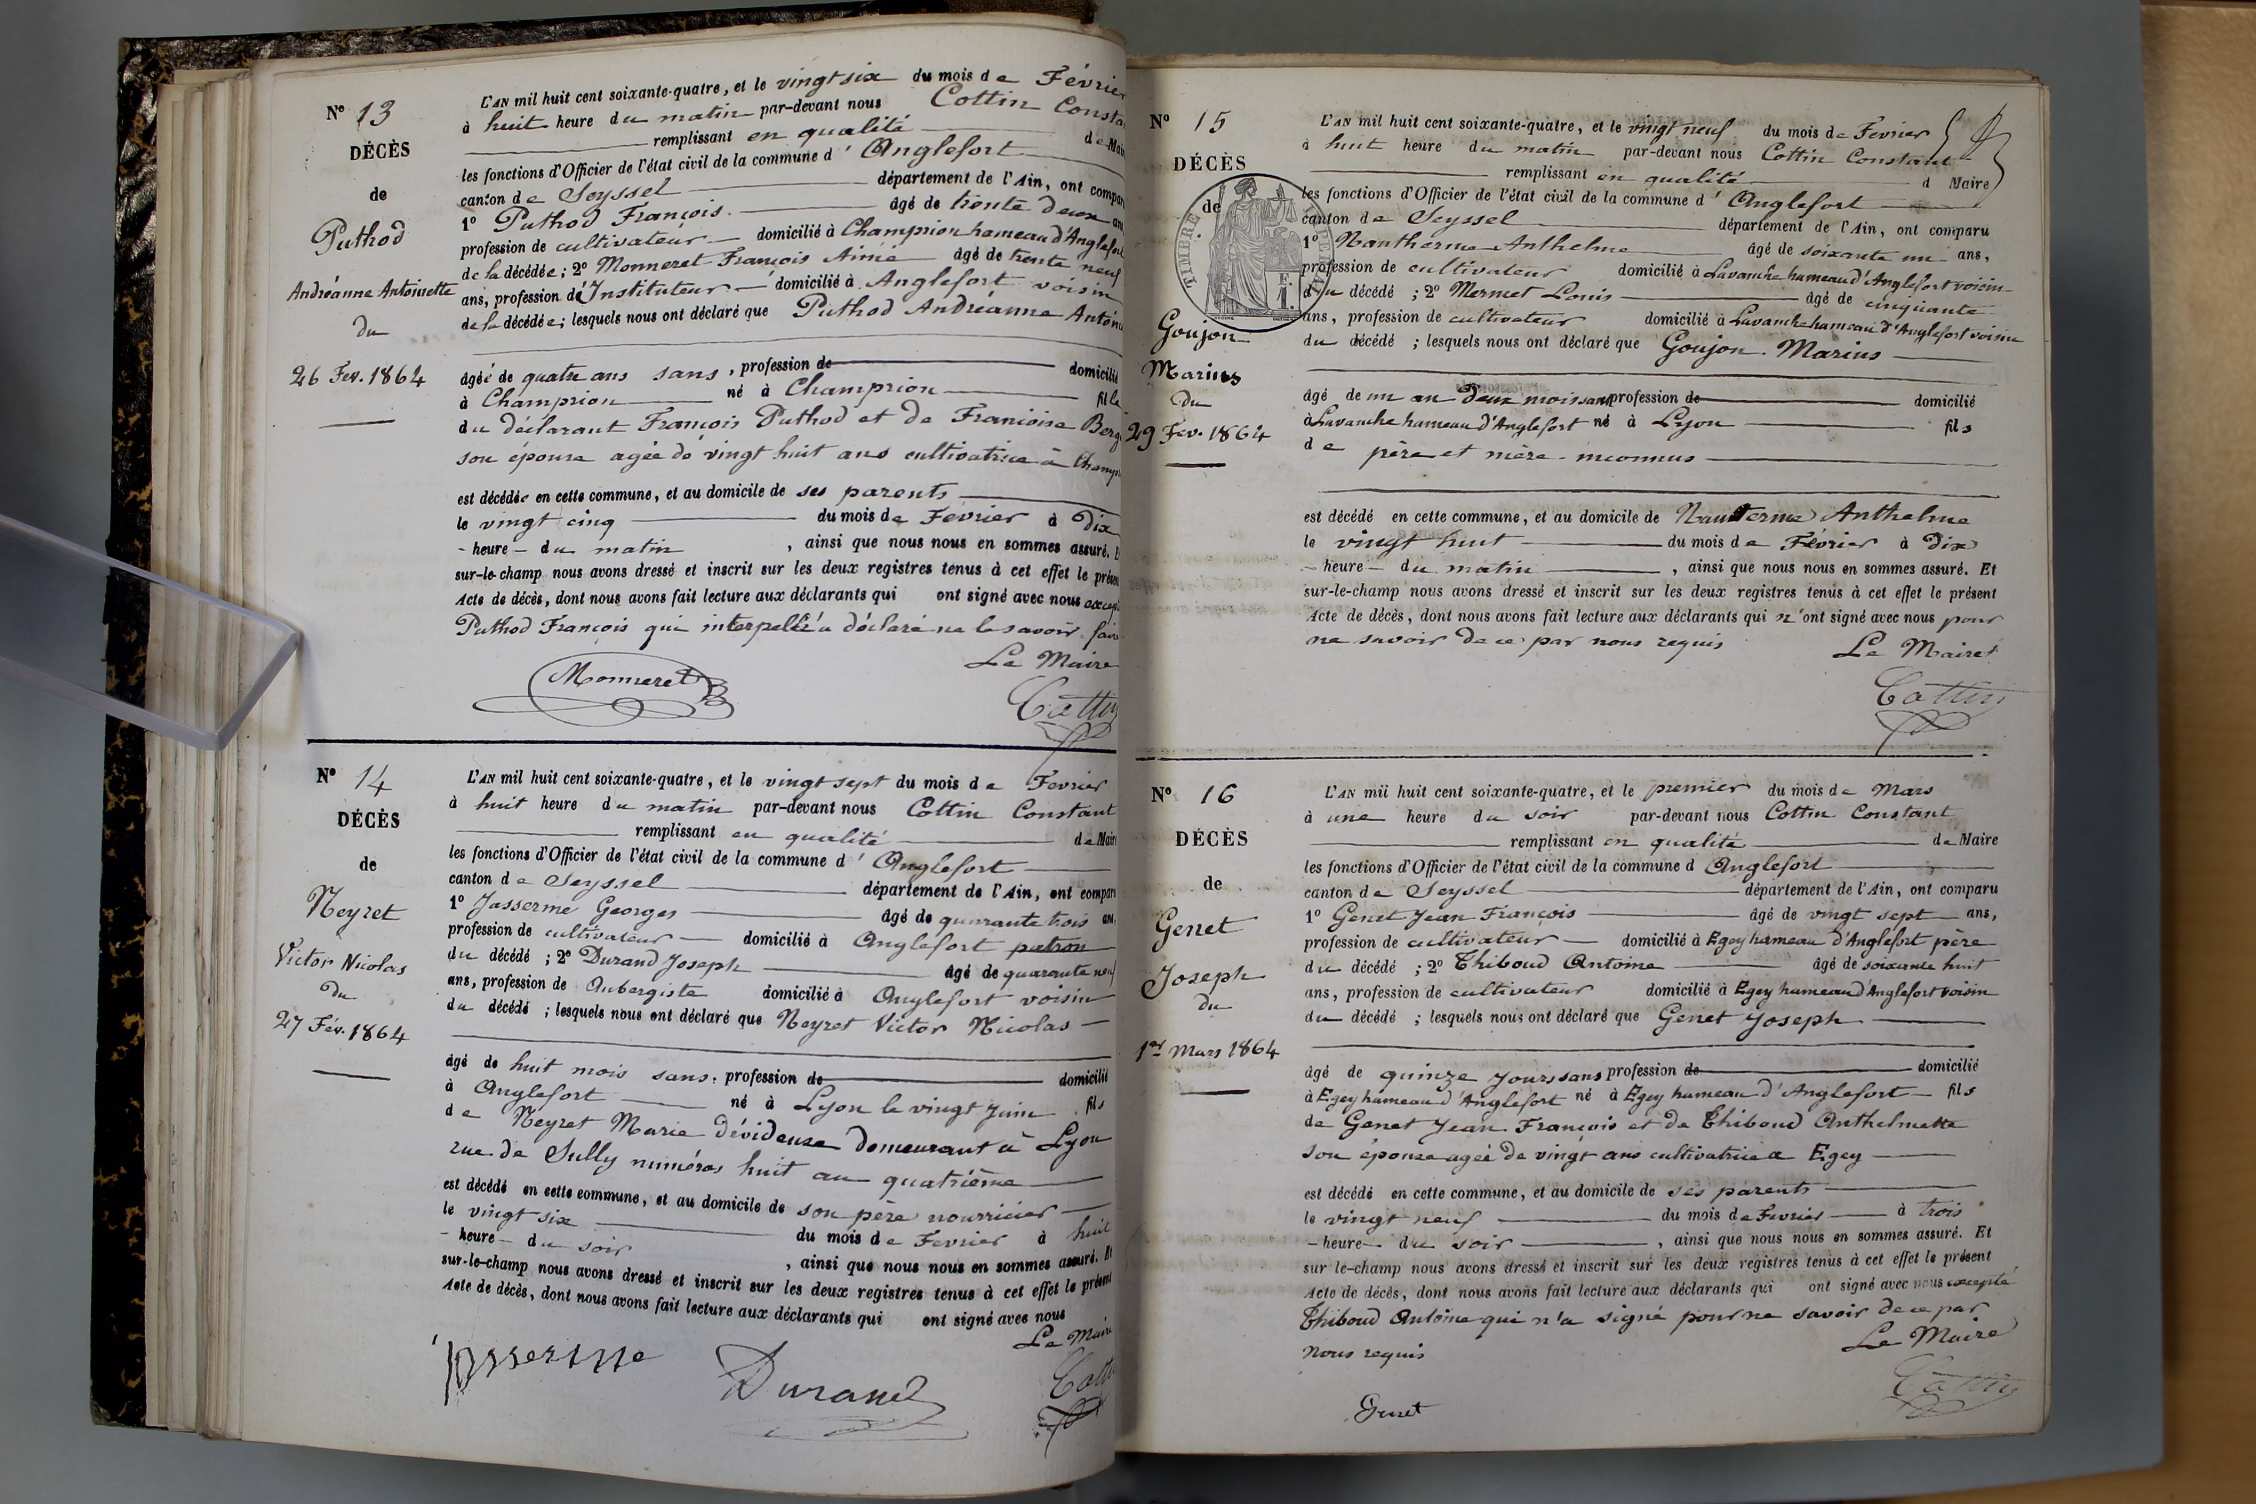 N° 13
DÉCÈS
de
Puthod
Andréanne Antoinette
du
26 Fev. 1864
L'AN mil huit cent soixante-quatre, et le vingt six du mois de Février
à huit heure du matin par-devant nous Cottin Consta
remplissant en qualité de Mai
les fonctions d'Officier de l'état civil de la commune d' Anglefort
canton de Seyssel département de l'Ain, ont compar
1° Puthod François âgé de trente deux an
profession de cultivateur domicilié à Champrion hameau d'Anglefort
de la décédée; 2° Monneret François Aimé âgé de trente neuf
ans, profession d'Instituteur domicilié à Anglefort voisin
de la décédée; lesquels nous ont déclaré que Puthod Andréanne Antoin
âgée de quatre ans sans, profession de domicilié
à Champrion né à Champrion fille
du déclarant François Puthod et de Francoise Berg
son épouse agée de vingt huit ans cultivatrice à Champr
est décédée en cette commune, et au domicile de ses parents
le vingt cinq du mois de Fevrier à dix
- heure - du matin, ainsi que nous nous en sommes assuré. E
sur-le-champ nous avons dressé et inscrit sur les deux registres tenus à cet effet le présen
Acte de décès, dont nous avons fait lecture aux déclarants qui ont signé avec nous excep
Puthod François qui interpellé a déclaré ne le savoir faire
Le Maire
Monneret
Cottin
N° 14
DÉCÈS
de
Neyret
Victor Nicolas
du
27 Fév. 1864
L'AN mil huit cent soixante-quatre, et le vingt sept du mois de Fevrier
à huit heure du matin par-devant nous Cottin Constant
remplissant en qualité de Mair
les fonctions d'Officier de l'état civil de la commune d' Anglefort
canton de Seyssel département de l'Ain, ont compar
1° Jasserme Georges âgé de quarante trois ans
profession de cultivateur domicilié à Anglefort patron
du décédé; 2° Durand Joseph âgé de quarante neuf
ans, profession de Aubergiste domicilié à Anglefort voisin
du décédé; lesquels nous ont déclaré que Neyret Victor Nicolas
âgé de huit mois sans, profession de domicilié
à Anglefort né à Lyon le vingt Juin fils
de Neyret Marie dévideuse demeurant à Lyon
rue de Sully numéros huit au quatrième
est décédé en cette commune, et au domicile de son père nourricier
le vingt six du mois de Fevrier à huit
- heure - du soir, ainsi que nous nous en sommes assuré. Et
sur-le-champ nous avons dressé et inscrit sur les deux registres tenus à cet effet le présent
Acte de décès, dont nous avons fait lecture aux déclarants qui ont signé avec nous
Le Maire
Jasserme
Durand
Cottin
N° 15
DÉCÈS
de
TIMBRE IMPERIAL
Goujon
Marius
du
29 Fev. 1864
L'AN mil huit cent soixante-quatre, et le vingt neuf du mois de Fevrier
à huit heure du matin par-devant nous Cottin Constant
remplissant en qualité d Maire
les fonctions d'Officier de l'état civil de la commune d' Anglefort
canton de Seyssel département de l'Ain, ont comparu
1° Nantherme Anthelme âgé de soixante un ans,
profession de cultivateur domicilié à Lavanche hameau d'Anglefort voisin
du décédé; 2° Mermet Louis âgé de cinquante
ans, profession de cultivateur domicilié à Lavanche hameau d'Anglefort voisin
du décédé; lesquels nous ont déclaré que Goujon Marius
âgé de un an deux mois sans profession de domicilié
à Lavanche hameau d'Anglefort né à Lyon fils
de père et mère inconnus
est décédé en cette commune, et au domicile de Nanterme Anthelme
le vingt huit du mois de Fevrier à dix
- heure - du matin, ainsi que nous nous en sommes assuré. Et
sur-le-champ nous avons dressé et inscrit sur les deux registres tenus à cet effet le présent
Acte de décès, dont nous avons fait lecture aux déclarants qui n'ont signé avec nous pour
ne savoir de ce par nous requis
Le Maire
Cottin
N° 16
DÉCÈS
de
Genet
Joseph
du
1er Mars 1864
L'AN mil huit cent soixante-quatre, et le premier du mois de Mars
à une heure du soir par-devant nous Cottin Constant
remplissant en qualité de Maire
les fonctions d'Officier de l'état civil de la commune d Anglefort
canton de Seyssel département de l'Ain, ont comparu
1° Genet Jean François âgé de vingt sept ans,
profession de cultivateur domicilié à Egey hameau d'Anglefort père
du décédé; 2° Thiboud Antoine âgé de soixante huit
ans, profession de cultivateur domicilié à Egey hameau d'Anglefort voisin
du décédé; lesquels nous ont déclaré que Genet Joseph
âgé de quinze jours sans profession de domicilié
à Egey hameau d'Anglefort né à Egey hameau d'Anglefort fils
de Genet Jean François et de Thiboud Anthelmette
son épouse agée de vingt ans cultivatrice a Egey
est décédé en cette commune, et au domicile de ses parents
le vingt neuf du mois de Fevrier à trois
- heure - du soir, ainsi que nous nous en sommes assuré. Et
sur le-champ nous avons dressé et inscrit sur les deux registres tenus à cet effet le présent
Acte de décès, dont nous avons fait lecture aux déclarants qui ont signé avec nous excepté
Thiboud Antoine qui n'a signé pour ne savoir de ce par
nous requis
Le Maire
Genet
Cottin